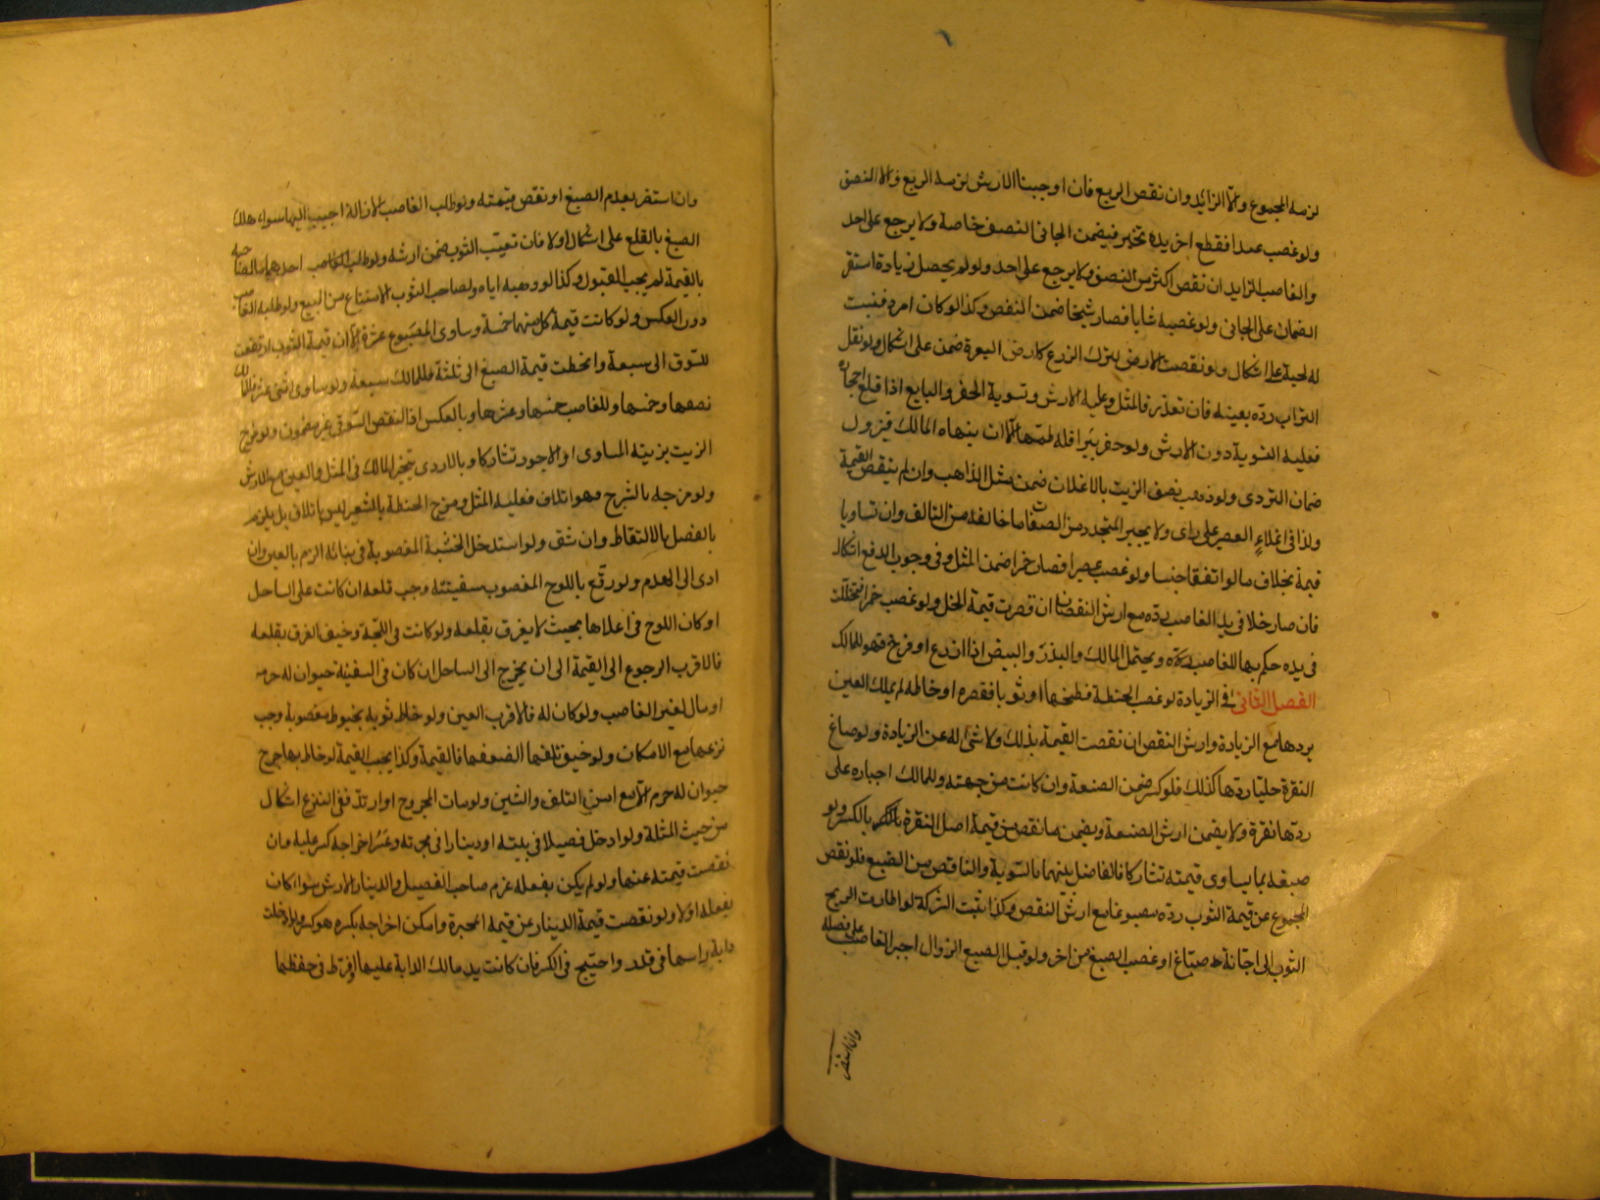 لزمه المجموع والا الزائد وان نقص الربع فان اوجبنا الارش لزمه الربع والا النصف
ولو غصب عبدا فقطع اخر يده تخير فيضمن الجاني النصف خاصة ولا يرجع على احد
والغاصب الزايد ان نقص اكثر من النصف ولا يرجع على احد ولو لم يحصل زيادة استقر
الضمان على الجاني ولو غصبه شابا فصار شيخا ضمن النقص وكذا لو كان امرد فنبتت
له لحية على اشكال ولو نقصت الارض لترك الزرع كارض البصرة ضمن على اشكال ولو نقل
التراب رده بعينه فان تعذر فالمثل وعليه الارش وتسوية الحفر والبايع اذا قلع احجاره
فعليه التسوية دون الارش ولو حفر بئرا فله طمها الا ان ينهاه المالك فيزول
ضمان التردي ولو ذهب نصف الزيت بالاغلاء ضمن مثل الذاهب وان لم ينقص القيمة
وكذا في اغلاء العصير على راى ولا يجبر المتجدد من الصفات ما خالفه من التالف وان تساويا
قيمة بخلاف ما لو اتفقا جنسا ولو غصب عصيرا فصار خمرا ضمن المثل وفي وجوب الدفع اشكال
فان صار خلا في يد الغاصب رده مع ارش النقصان ان قصرت قيمة الخل ولو غصب خمرا فتخللت
في يده حكم بها للغاصب ويحتمل المالك والبذر والبيض اذا انزرع او فرخ فهو للمالك
الفصل الثاني في الزيادة لو غصب الحنطة فطحنها او ثوبا فقصره او خاطه لم يملك العين
بردها مع الزيادة وارش النقص ان نقصت القيمة بذلك ولا شئ له عن الزيادة ولو صاغ
النقرة حليا ردها كذلك فلو كسر ضمن الصنعة وان كانت من جهته وللمالك اجباره على
ردها نقرة ولا يضمن ارش الصنعة ويضمن ما نقص من قيمة اصل النقرة بالكسر ولو
صبغه بما يساوى قيمته تشاركا فالفاضل بينهما بالسوية والناقص من الصبغ فلو نقص
المجموع عن قيمة الثوب رده مصبوغا مع ارش النقص وكذا يثبت الشركة لو اطارت الريح
الثوب الى اجانة صباغ او غصب الصبغ من اخر ولو قبل الصبغ الزوال اجبر الغاصب على فصله
وان استضر
وان استضر بعدم الصبغ او نقص قيمته ولو طلب الغاصب الازالة اجيب اليها سواء هلك
الصبغ بالقلع على اشكال اولا فان تعيب الثوب ضمن ارشه ولو طلب احدهما ما لصاحبه
بالقيمة لم يجب القبول وكذا لو وهبه اياه ولصاحب الثوب الامتناع من البيع ولو طلبه الغاصب
دون العكس ولو كانت قيمة كل منهما خمسة وساوى المصبوغ عشرة الا ان قيمة الثوب ارتفعت
للسوق الى سبعة وانحطت قيمة الصبغ الى ثلثة فللمالك سبعة ولو ساوى اثنى عشر فللمالك
نصفها وخمسها وللغاصب خمسها وعشرها وبالعكس اذ النقص السوقي غير مضمون ولو مزج
الزيت بزيته المساوى او الاجود تشاركا وبالاردى يتخير المالك في المثل والعين مع الارش
ولو مزجه بالشيرج فهو اتلاف فعليه المثل ومزج الحنطة بالشعير ليس باتلاف بل يلزم
بالفصل بالالتقاط وان شق ولو استدخل الخشبة المغصوبة في بنائه الزم بالعين وان
ادى الى الهدم ولو رقع باللوح المغصوب سفينته وجب قلعه ان كانت على الساحل
او كان اللوح في اعلاها بحيث لا يغرق بقلعه ولو كانت في اللجة وخيف الغرق بقلعه
فالاقرب الرجوع الى القيمة الى ان يخرج الى الساحل ان كان في السفينة حيوان له حرمة
او مال لغير الغاصب ولو كان له فالاقرب العين ولو خاط ثوبه بخيوط مغصوبة وجب
نزعها مع الامكان ولو خيف تلفها لضعفها فالقيمة وكذا يجب القيمة لو خاط بها جرح
حيوان له حرمة الا مع امن التلف والشين ولو مات المجروح او ارتد ففي النزع اشكال
من حيث المثلة ولو ادخل فصيلا في بيته او دينارا في محبرته وعسر اخراجه كسر عليه وان
نقصت قيمته عنهما ولو لم يكن بفعله غرم صاحب الفصيل والدينار الارش سواء كان
بفعله اولا ولو نقصت قيمة الدينار عن قيمة المحبرة وامكن اخراجه بكسره هو كسر ولو ادخلت
دابة راسها في قدر واحتيج الى الكسر فان كانت يد مالك الدابة عليها او فرط في حفظها